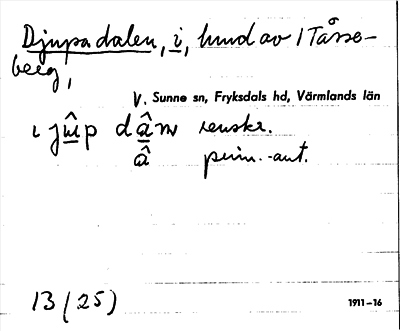 Djupa dalen, i, hmd av 1 Tåsse-
berg,
V. Sunne sn, Fryksdals hd, Värmlands län
ı jû̱p dâ̱n renskr.
â prim.-ant.
13 (25) 1911–16